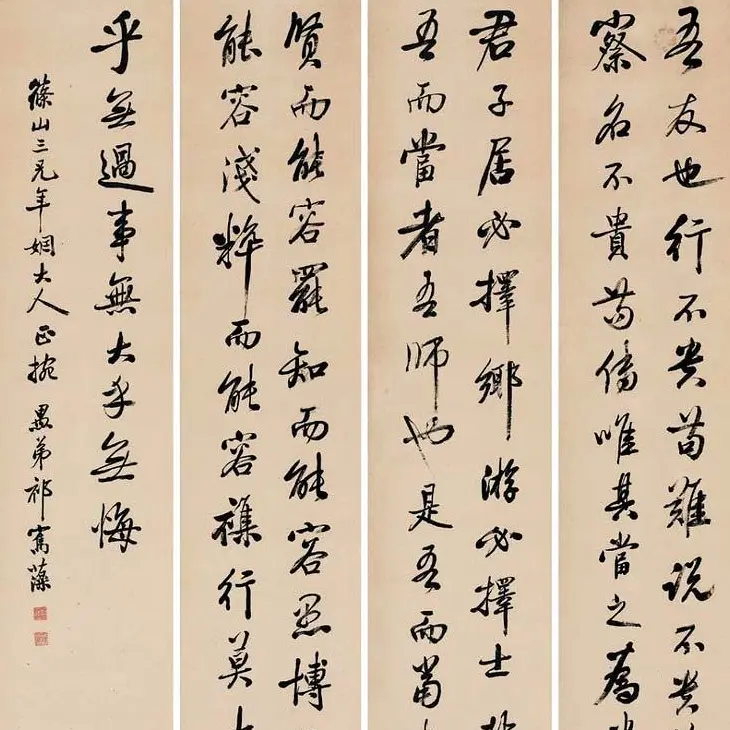 吾友也行不貴苟難說不貴
察名不貴苟傳唯其當之為
君子居必擇鄉游必擇士
吾而當者吾師也是吾而當
賢而能容罷知而能容愚博
能容淺粹而能容襍行莫
乎無過事無大乎無悔
篠山三兄年姻大人正捥 愚弟祁寯藻